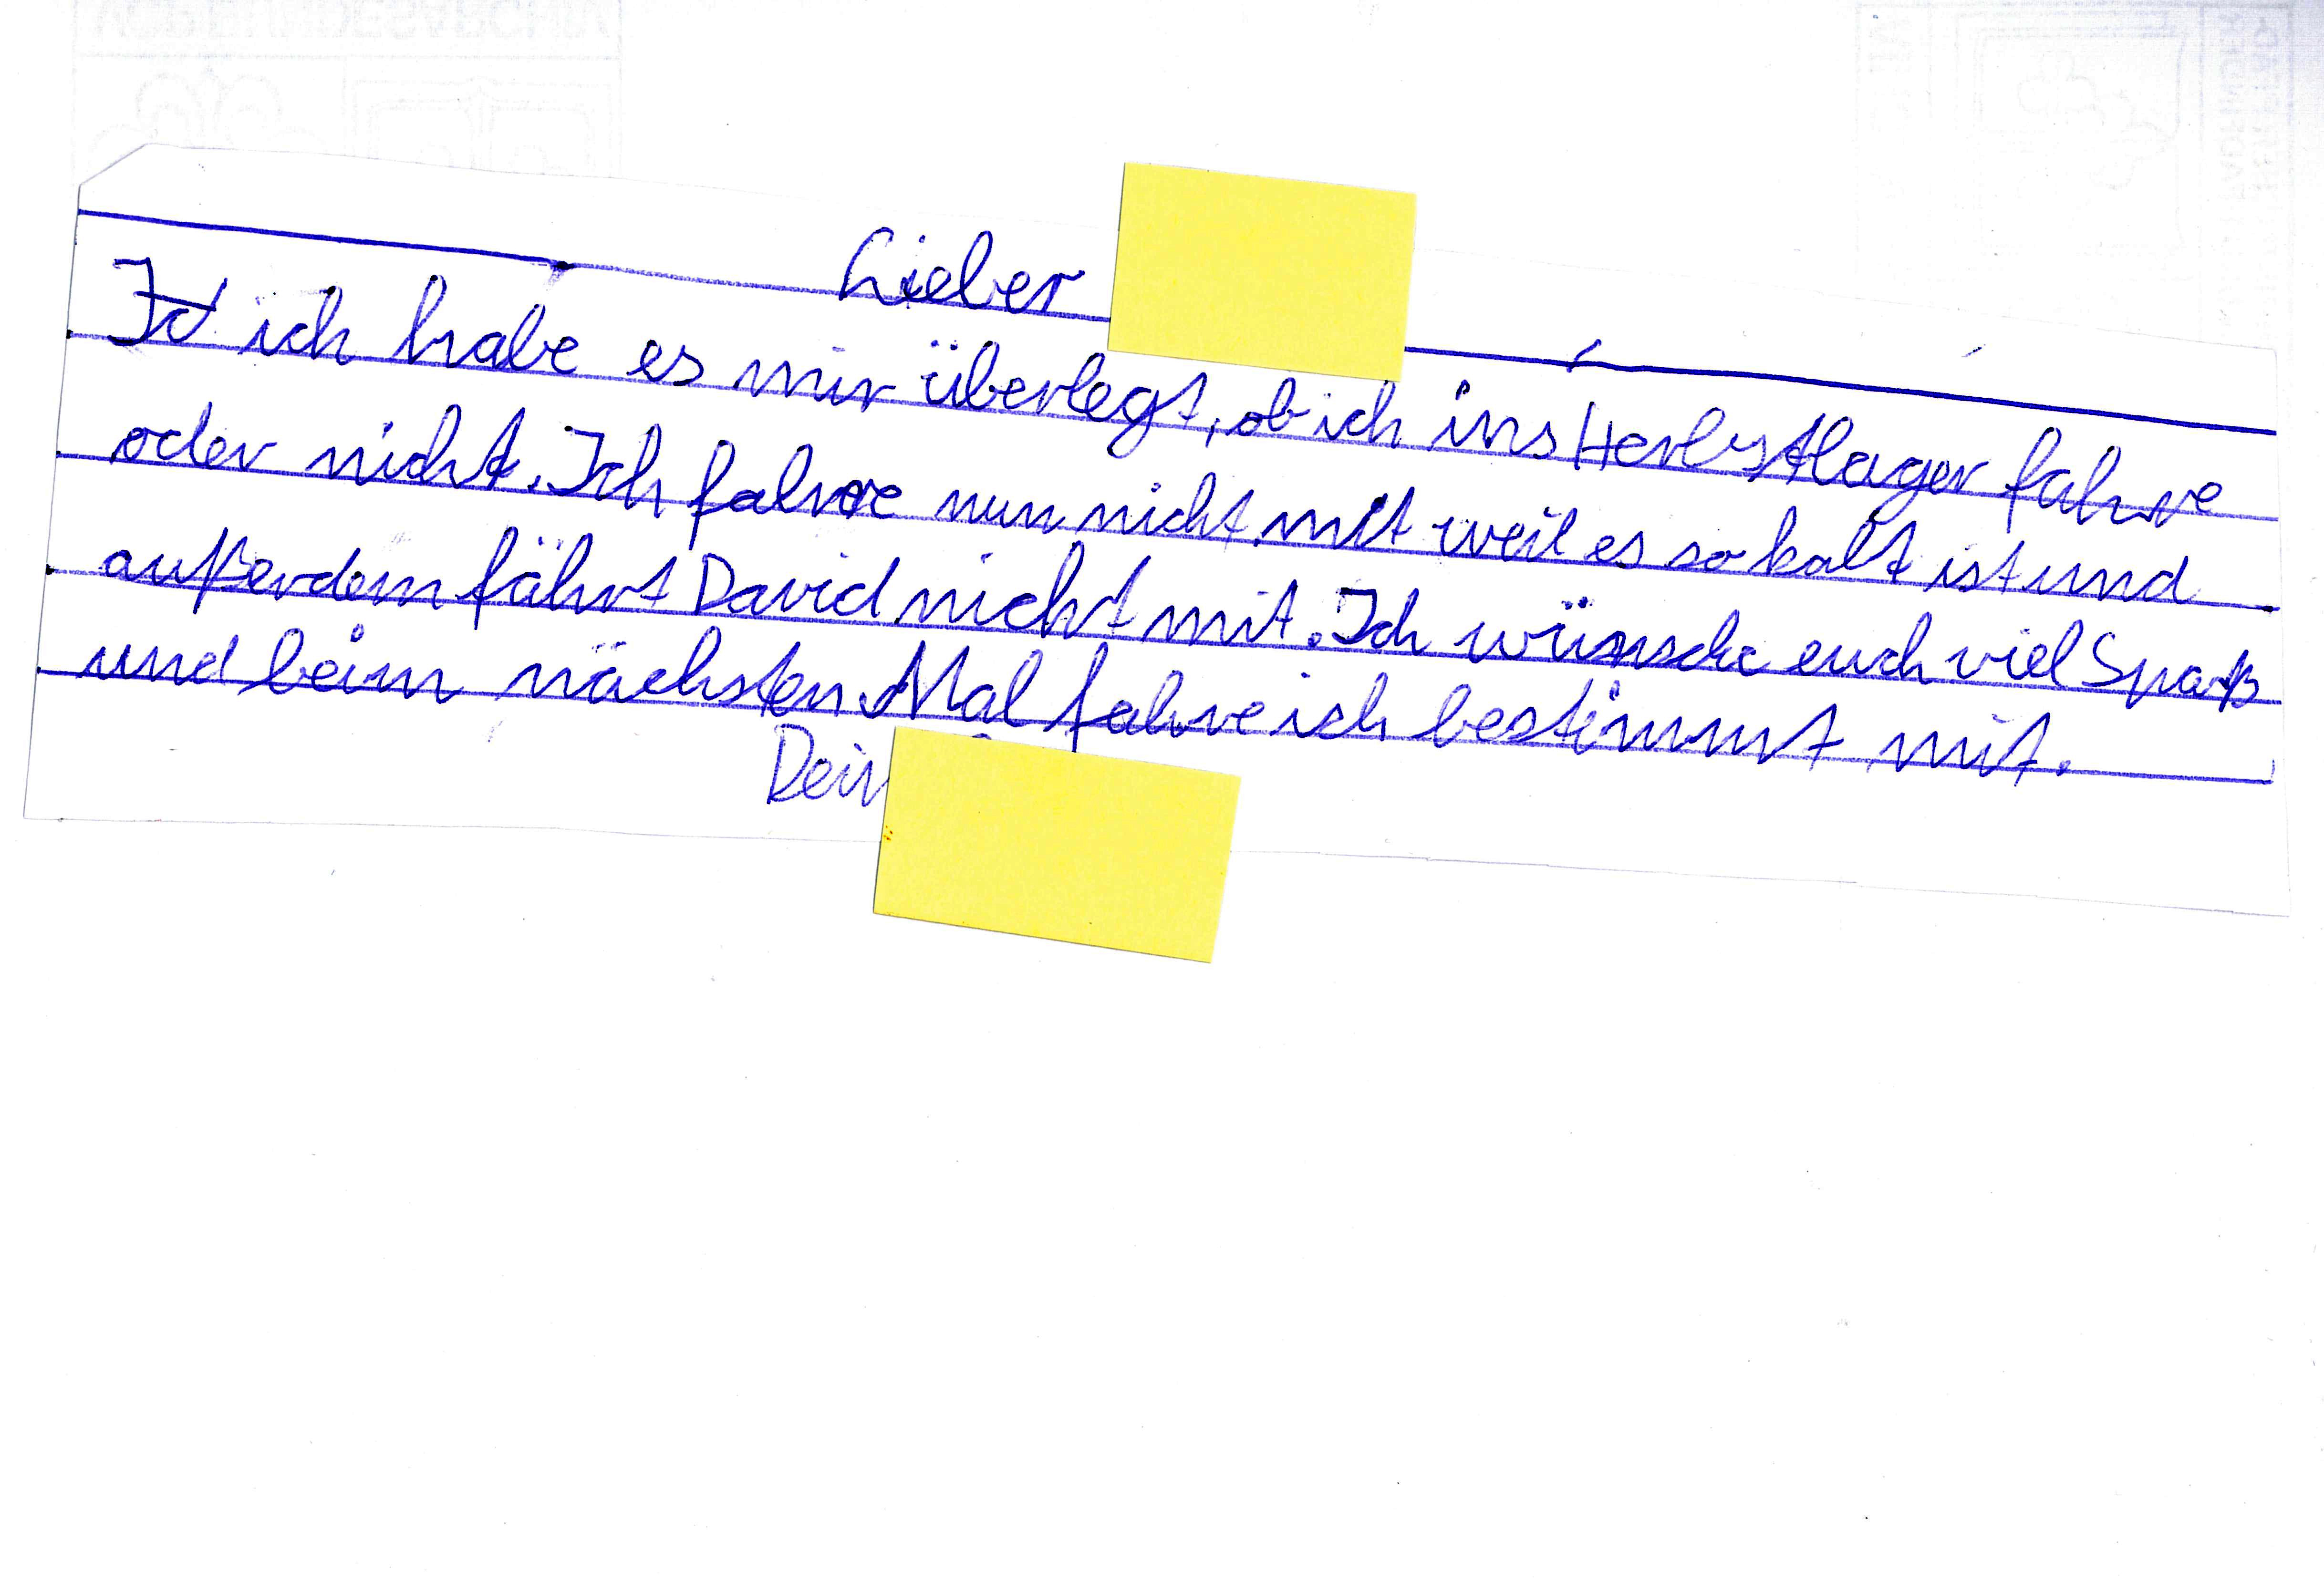 Lieber
ich habe es mir überlegt, ob ich ins Herbstlager fahre
oder nicht. Ich fahre nun nicht mit weil es so kalt ist und
außerdem fährt David nicht mit. Ich wünsche euch viel Spaß
und beim nächsten Mal fahre ich bestimmt mit.
Dein